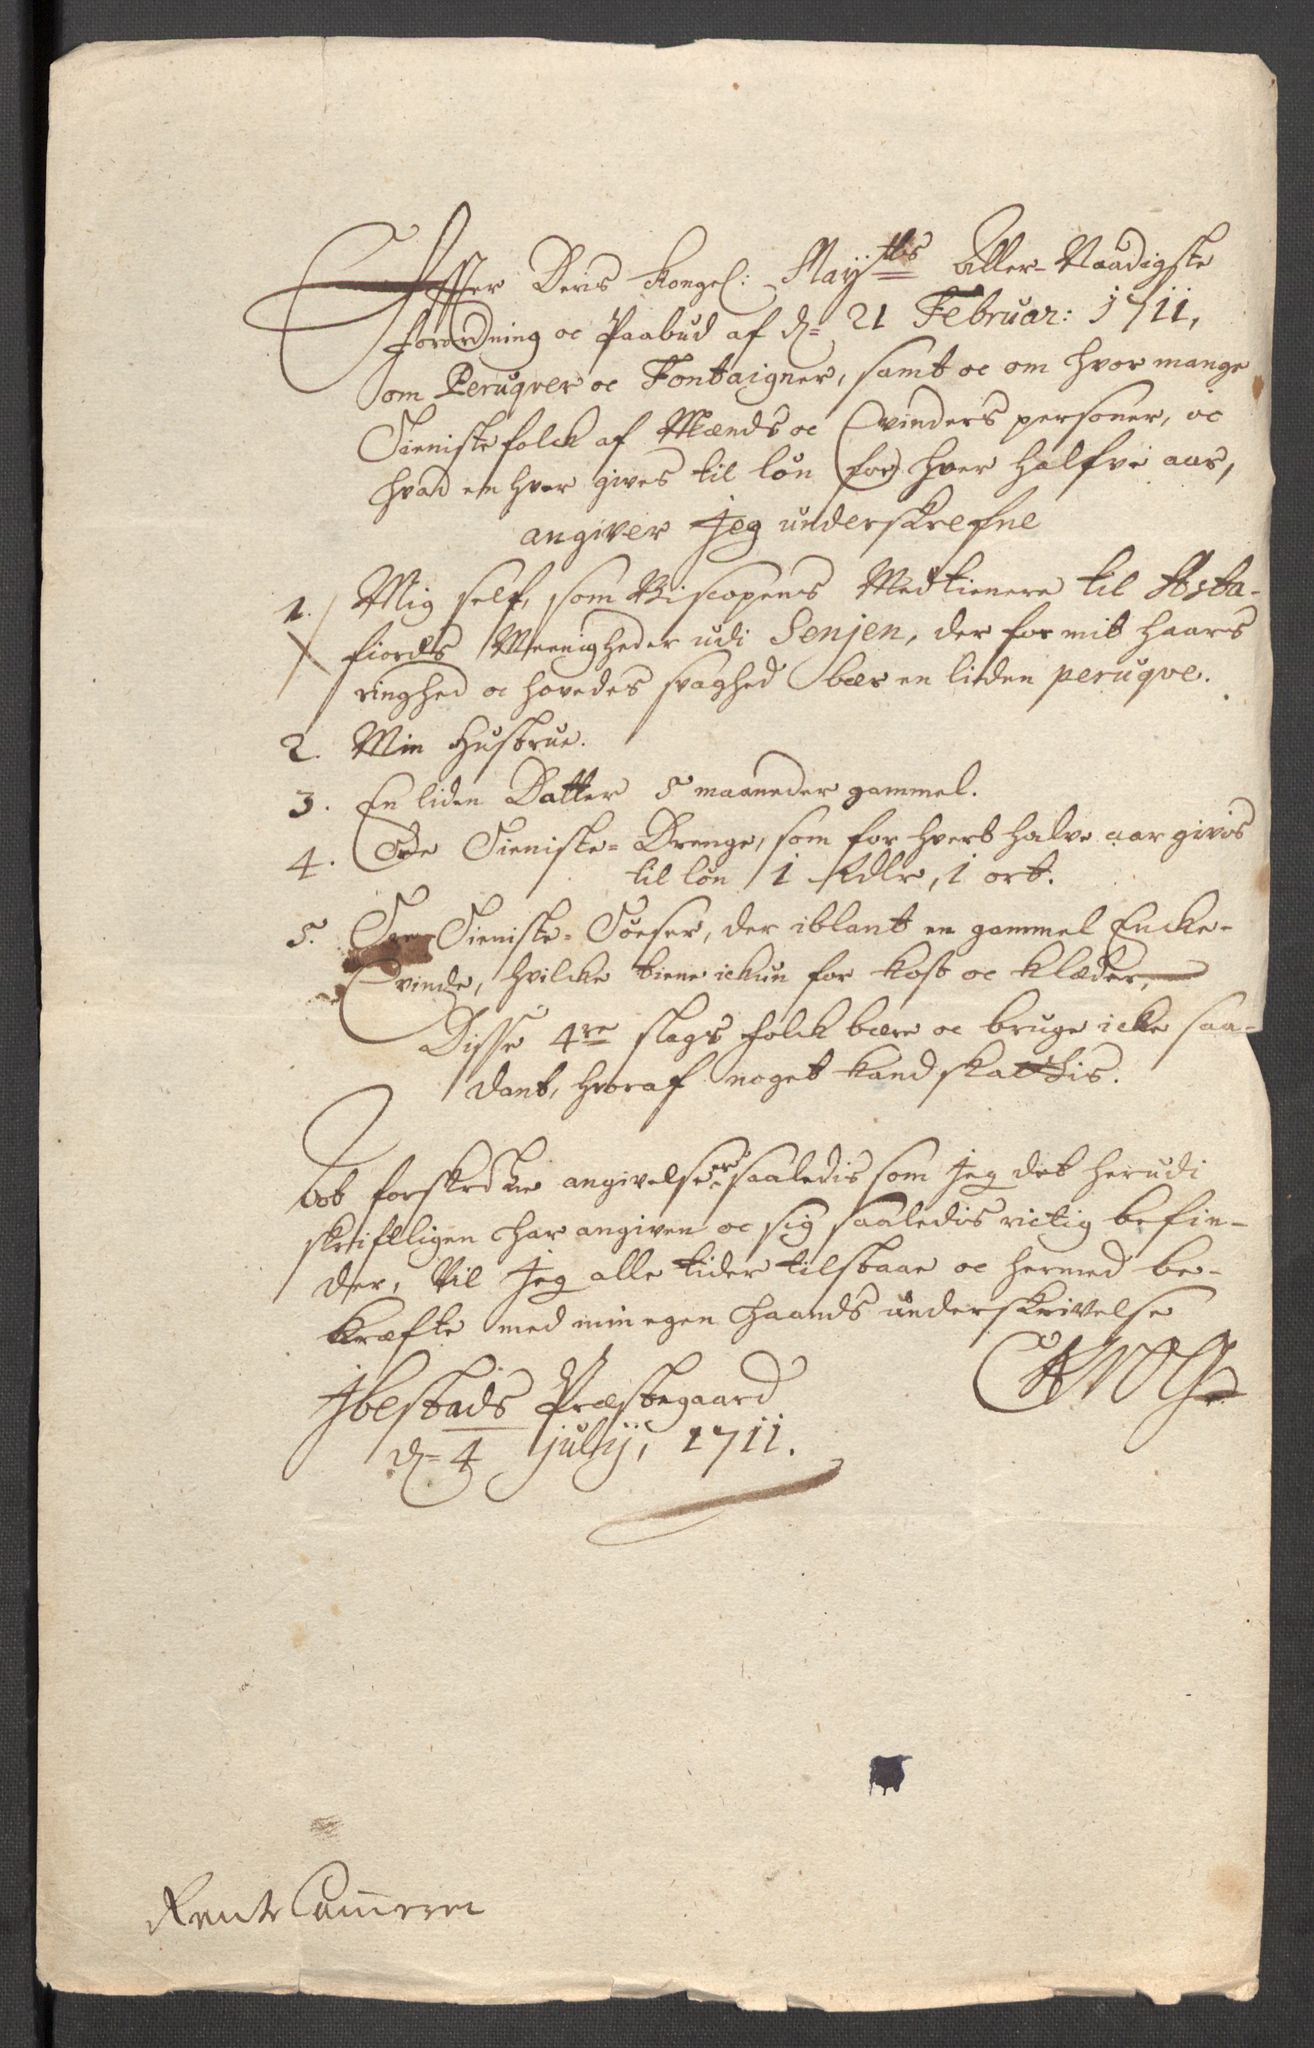 Efter Deris Kongel: Mayttls Aller-Naadigste
forordning oc Paabud af d= 21 Februar: 1711,
om Peruqver oc Fontaigner, samt oc om hvor mange
Tienistefolck af Mænds oc Qvinders personer, oc
hvad en hver gives til løn for hver halfve aar,
angiver Jeg underskrefne
1. Mig self, som Biscopens Medtienere til Asta-
fiords Meenigheder udi Senjen, der for mit haars
ringhed oc hovedes svaghed bær en liden peruqve.
2. Min Hustrue.
3. En liden Datter 5 maaneder gammel.
4. Tre Tieniste-Drenge, som for hvert halve aar givis
til løn 1 Rdlr, 1 ort.
5. Tre Tieniste-Tøeser, der iblant en gammel Encke-
Qvinde, hvilcke tiene ickun for kost oc klæder,
Disse 4re slags folck bære oc bruge icke saa-
dant, hvoraf noget kand skattis.
At forskrefne angivelse er saaledis som Jeg det herudi
skriftligen har angiven oc sig saaledis rictig befin-
der, Vil Jeg alle tider tilstaae oc hermed be-
kræfte med min egen haands underskrivelse
Ibestads Præstegaard
d= 4 julij, 1711.
Rente Cammeret